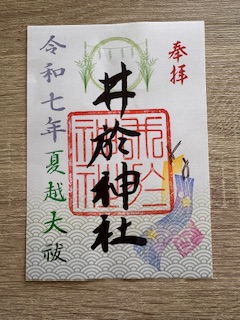 奉拝
井於神社
令和七年夏越大祓